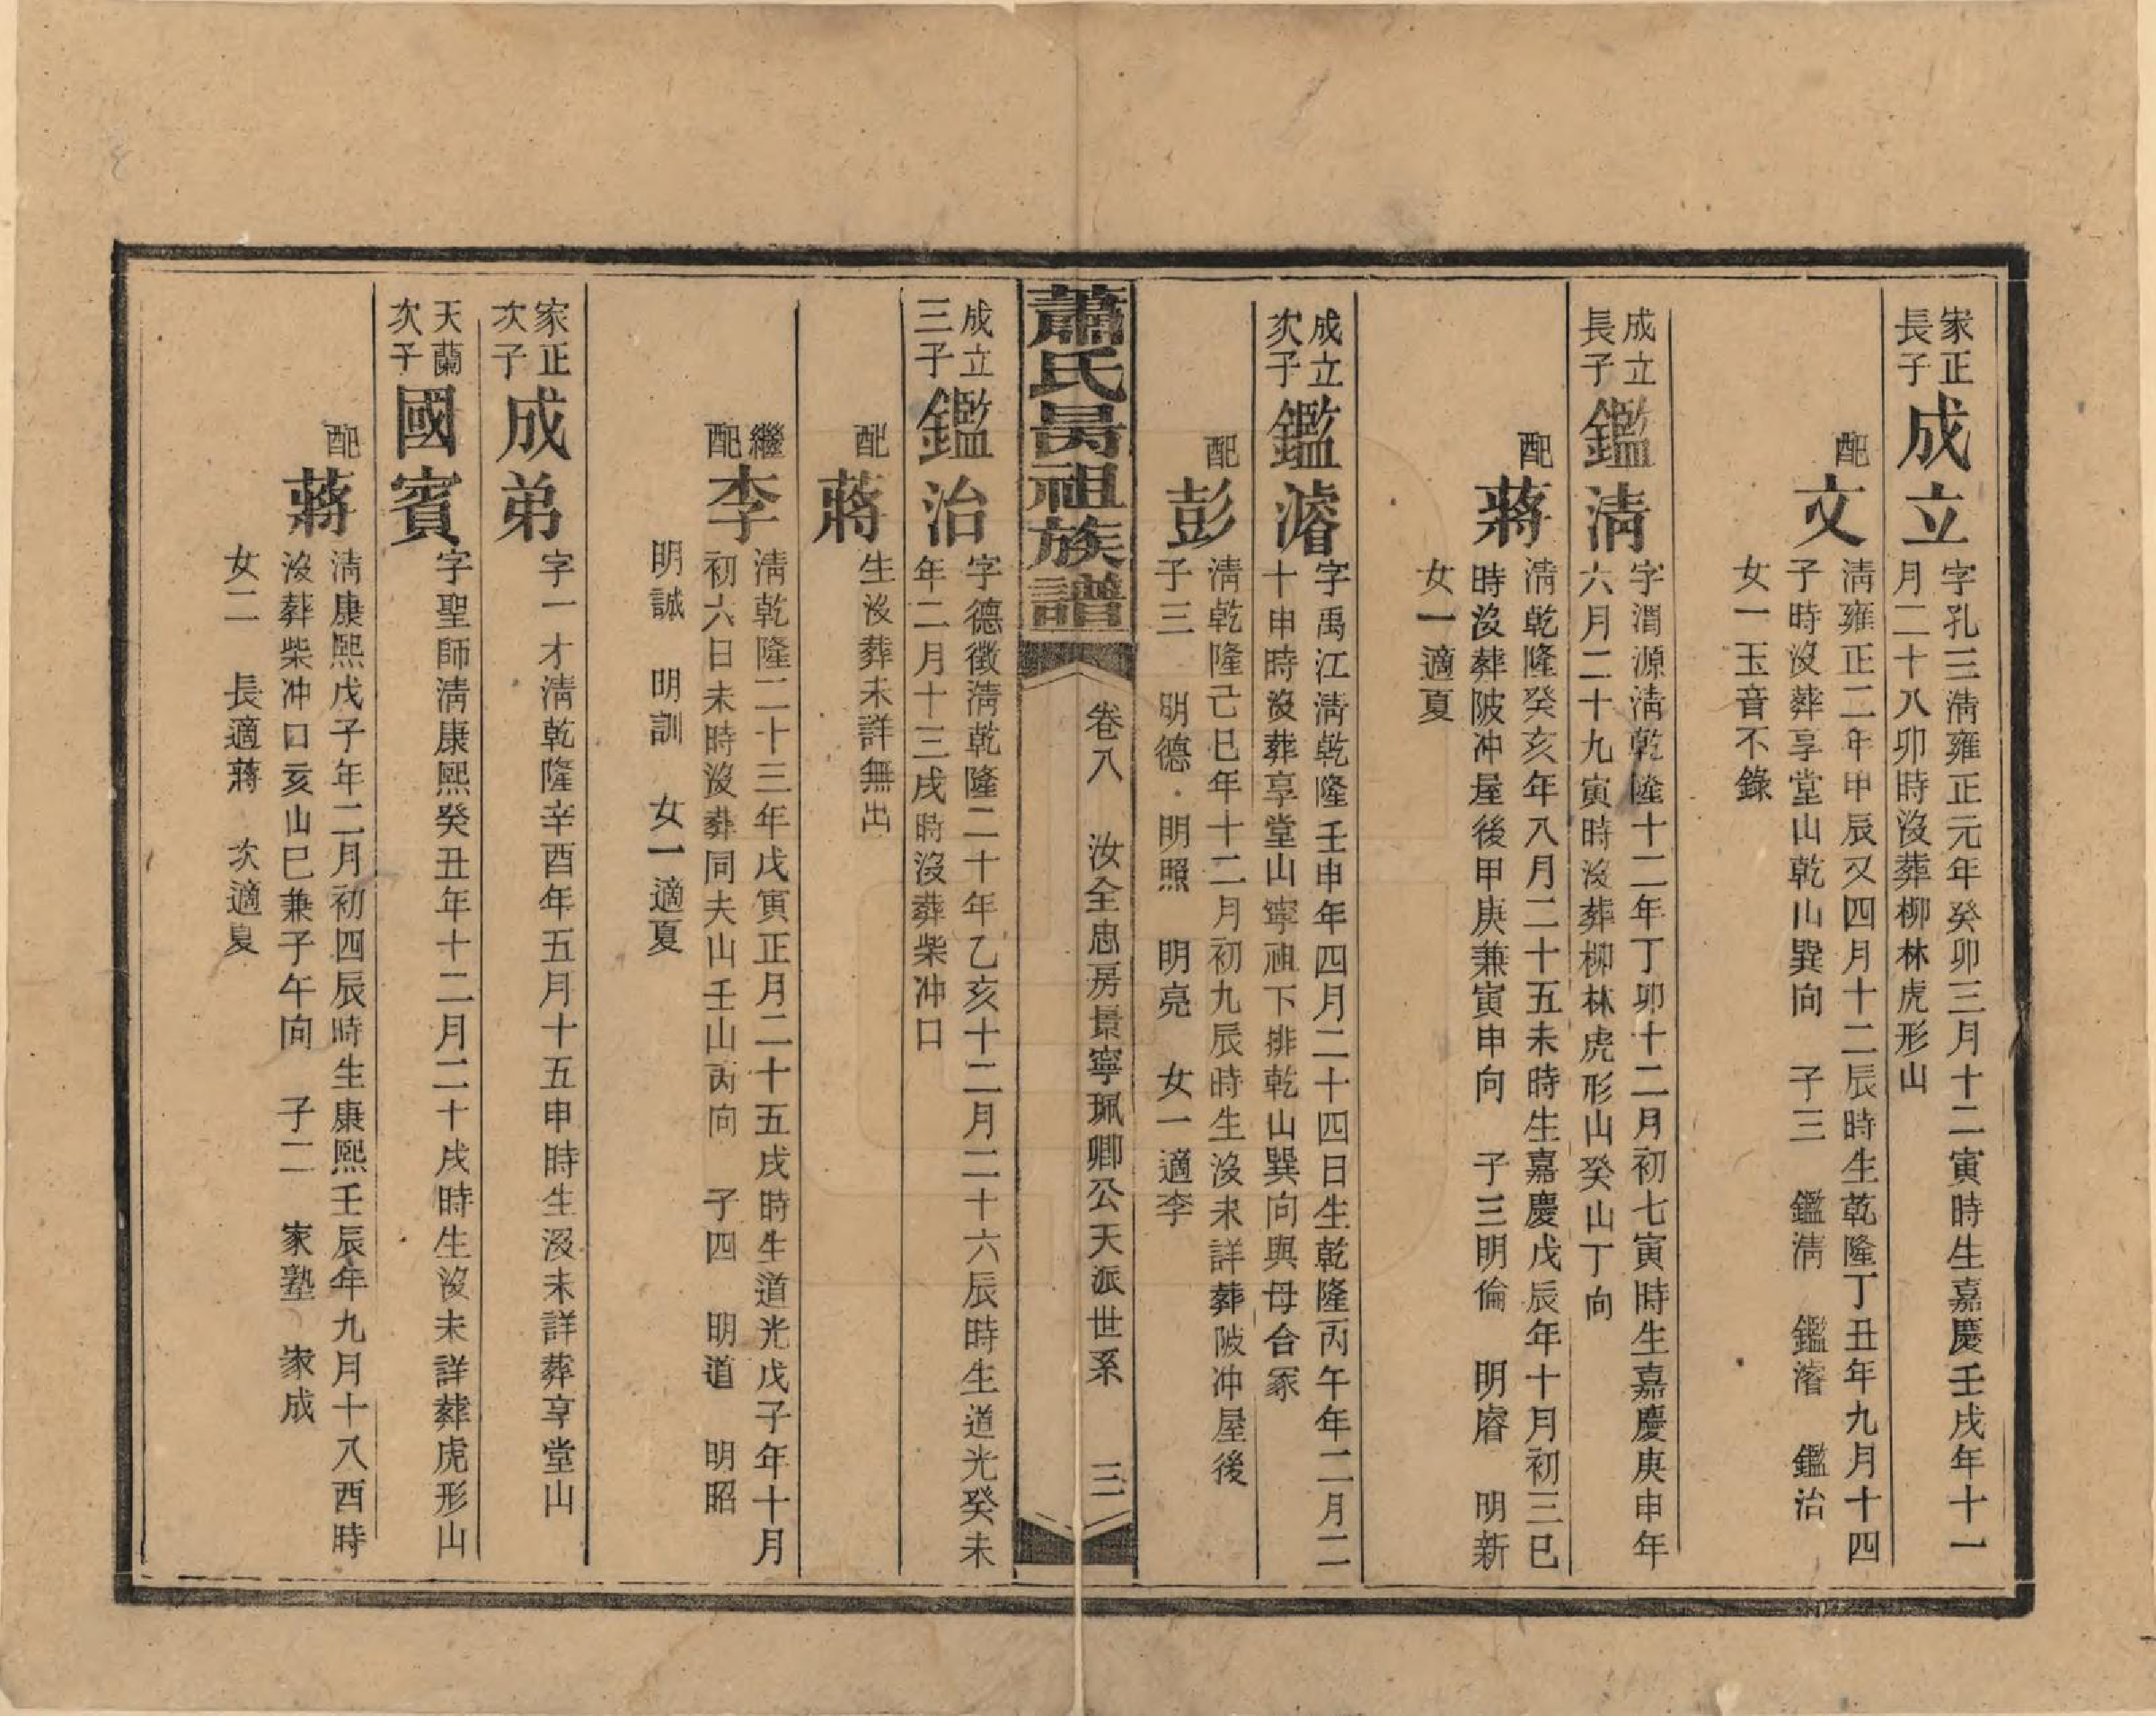 家正
長子
成立
字孔三淸雍正元年癸卯三月十二寅時生嘉慶壬戌年十一
月二十八卯時沒葬柳林虎形山
配
文
淸雍正二年甲辰又四月十二辰時生乾隆丁丑年九月十四
子時沒葬享堂山乾山巽向 子三 鑑淸 鑑濬 鑑治
女一玉音不錄
成立
長子
鑑淸
字渭源淸乾隆十二年丁卯十二月初七寅時生嘉慶庚申年
六月二十九寅時沒葬柳林虎形山癸山丁向
配
蔣
淸乾隆癸亥年八月二十五未時生嘉慶戊辰年十月初三巳
時沒葬陂冲屋後甲庚兼寅申向 子三明倫 明睿 明新
女一適夏
成立
次子
鑑濬
字禹江淸乾隆壬申年四月二十四日生乾隆丙午年二月二
十申時沒葬享堂山寧祖下排乾山巽向與母合冢
配
彭
淸乾隆己巳年十二月初九辰時生沒未詳葬陂冲屋後
子三 明德 明照 明亮 女一適李
蕭氏昺祖族譜
卷八 汝全忠房景寧珮卿公天派世系 三
成立
三子
鑑治
字德徵淸乾隆二十年乙亥十二月二十六辰時生道光癸未
年二月十三戌時沒葬柴冲口
配
蔣
生沒葬未詳無出
繼
配
李
淸乾隆二十三年戊寅正月二十五戌時生道光戊子年十月
初六日未時沒葬同夫山壬山丙向 子四 明道 明昭
明誠 明訓 女一適夏
家正
次子
成弟
字一才淸乾隆辛酉年五月十五申時生沒未詳葬享堂山
天蘭
次子
國賓
字聖師淸康熙癸丑年十二月二十戌時生沒未詳葬虎形山
配
蔣
淸康熙戊子年二月初四辰時生康熙壬辰年九月十八酉時
沒葬柴冲口亥山巳兼子午向 子二 家塾 家成
女二 長適蔣 次適夏